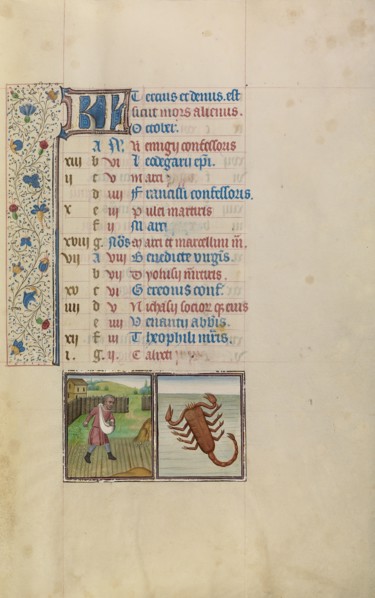 KL Tercius et denus. est
sicut mors alienus.
October.
a Remigii confessoris
xiii b vi Leodegarii epi.
ii c v Marci
d iiii Francisci confessoris.
x e iii Pulci martiris
f ii Marci
xviii g. Nōs Marci et marcellini m̄.
vii a viii Benedicte virgīs.
b vii m̄rtiris
xv c vi Gereonis conf.
iiii d v Nichasii socior qȝ eius
e iiii Venantii abbīs.
xii f iii Theophili m̄ris.
i. g. ii. Calixti